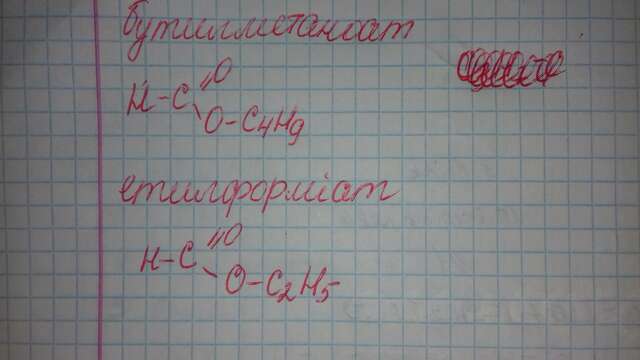 бутилметаноат
H-C
=O
O-C4H9
етилформіат
H-C
=O
O-C2H5